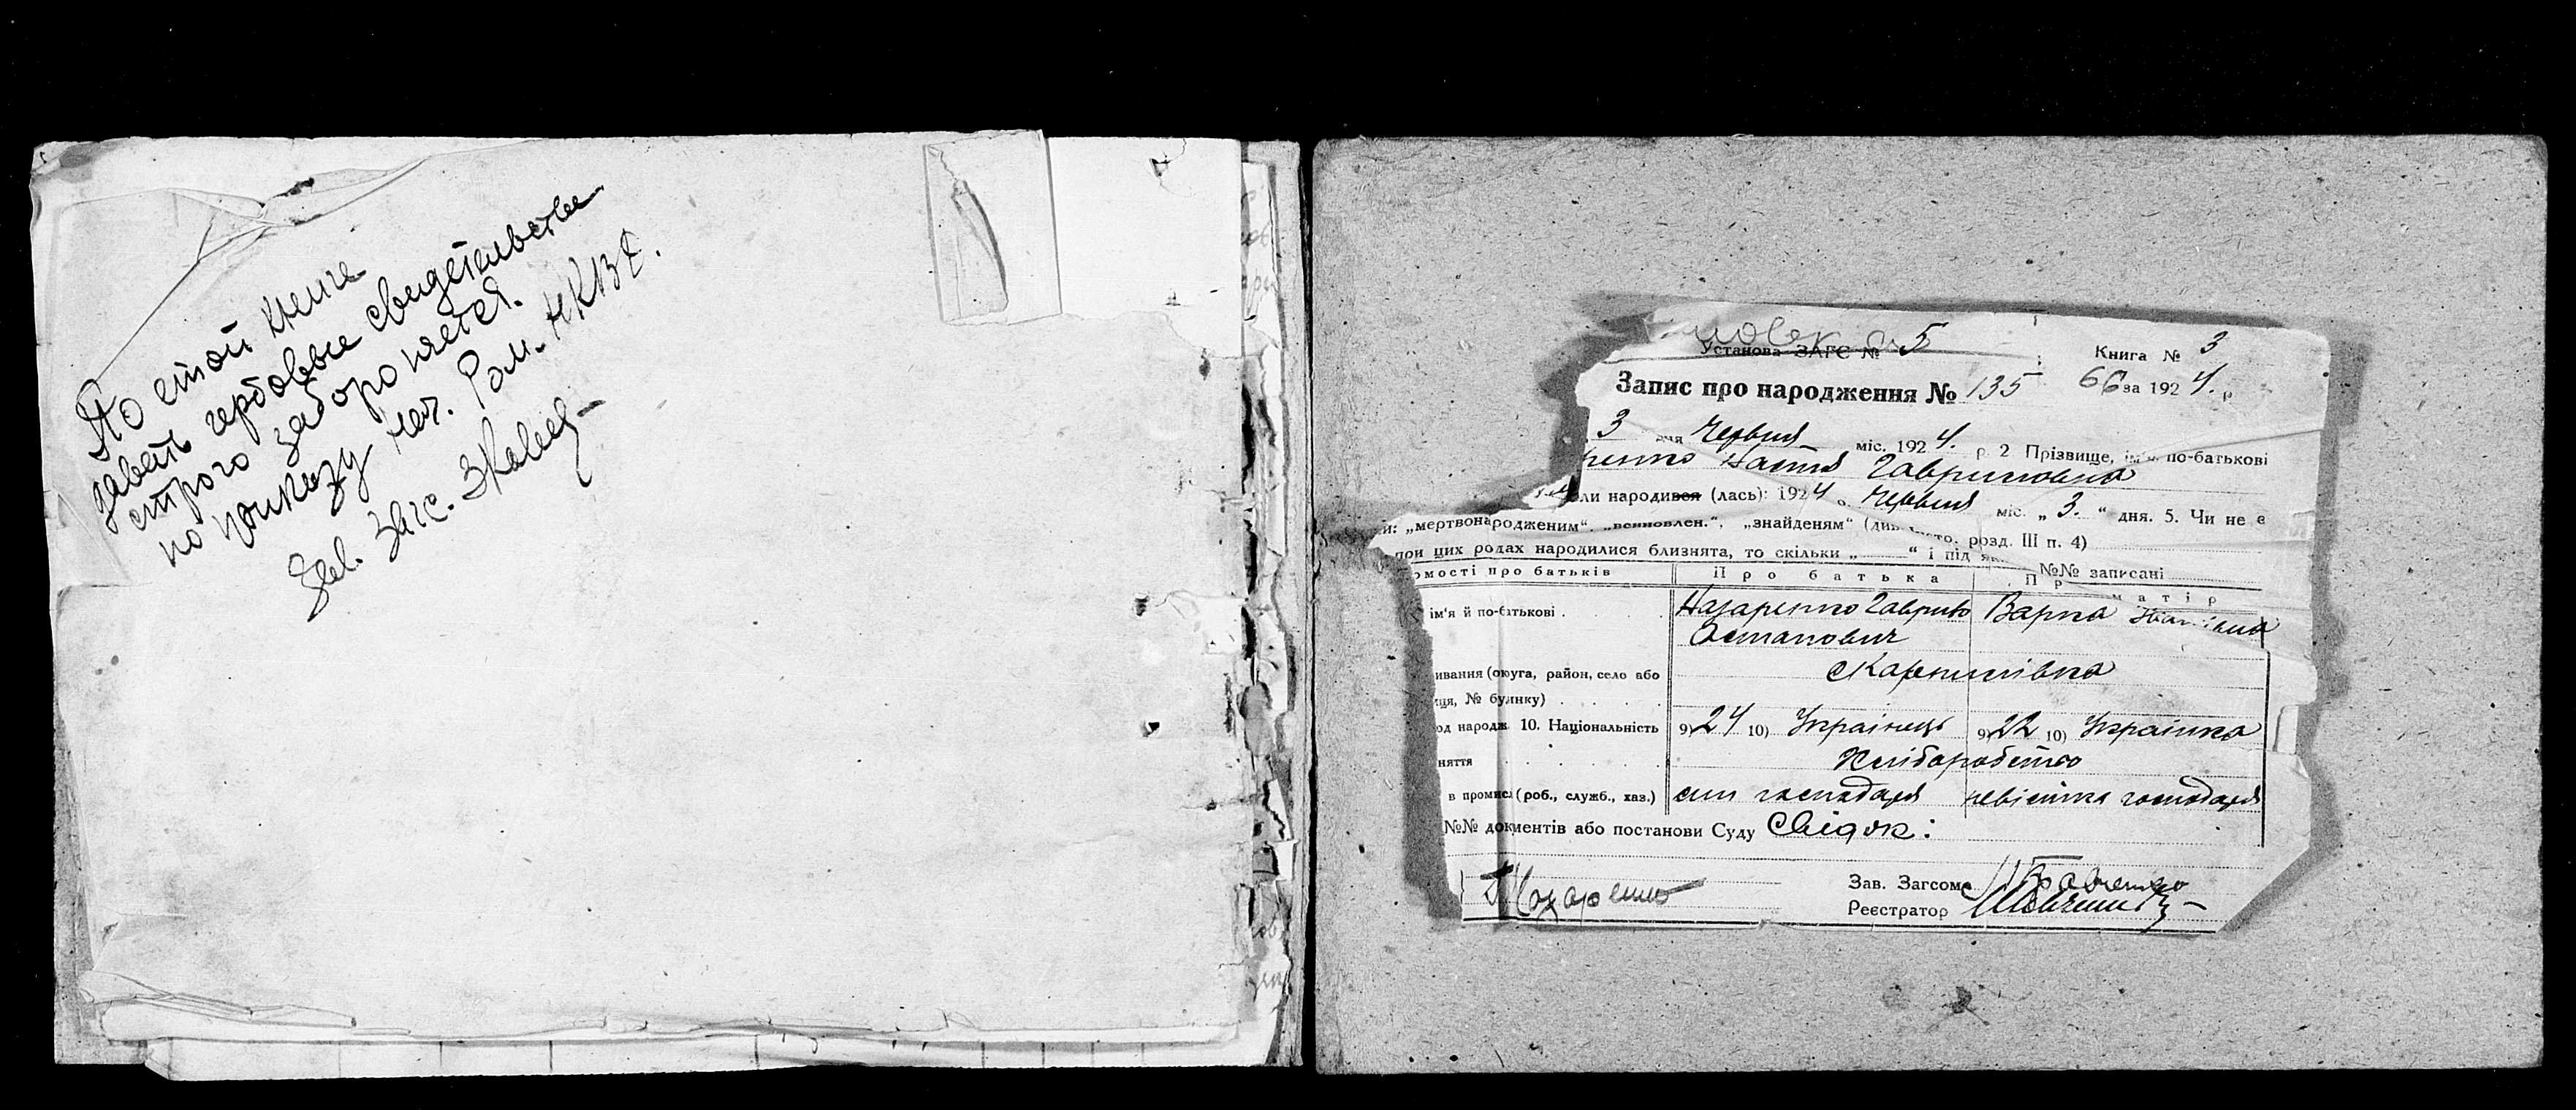 По етой книге
давать гербовые свидетельства
строго забороняется.
по приказу нач. Рай. НКВД.
Зав. Загс.
Установа ЗАГС № 5
Книга № 3
Запис про народження № 135
66 за 1924. р.
3 дня Червня міс. 1924. р. 2 Прізвище, ім'я, по-батькові
ренко Настя Гавриловна
оли народився (лась): 1924 р. Червня міс. „ 3. “ дня. 5. Чи не є
и: „мертвонародженим“, „всиновлен.“, „знайденям“ (див. розд. III п. 4)
при цих родах народилися близнята, то скільки „ “ і під
№№ записані
омості про батьків
Про батька
матір
ім'я й по-батькові . Назаренко Гаврило Варка Іванівна
Остапович
ивання (округа, район, село або Карпилівка
иця, № будинку)
од народж. 10. Національність 9) 24 10) Українець 9) 22 10) Українка
няття Хліборобство
в промисл (роб., служб., хаз.) син господаря невістка господаря
№№ документів або постанови Суду Свідок:
Назаренко
Зав. Загсом
Реєстратор